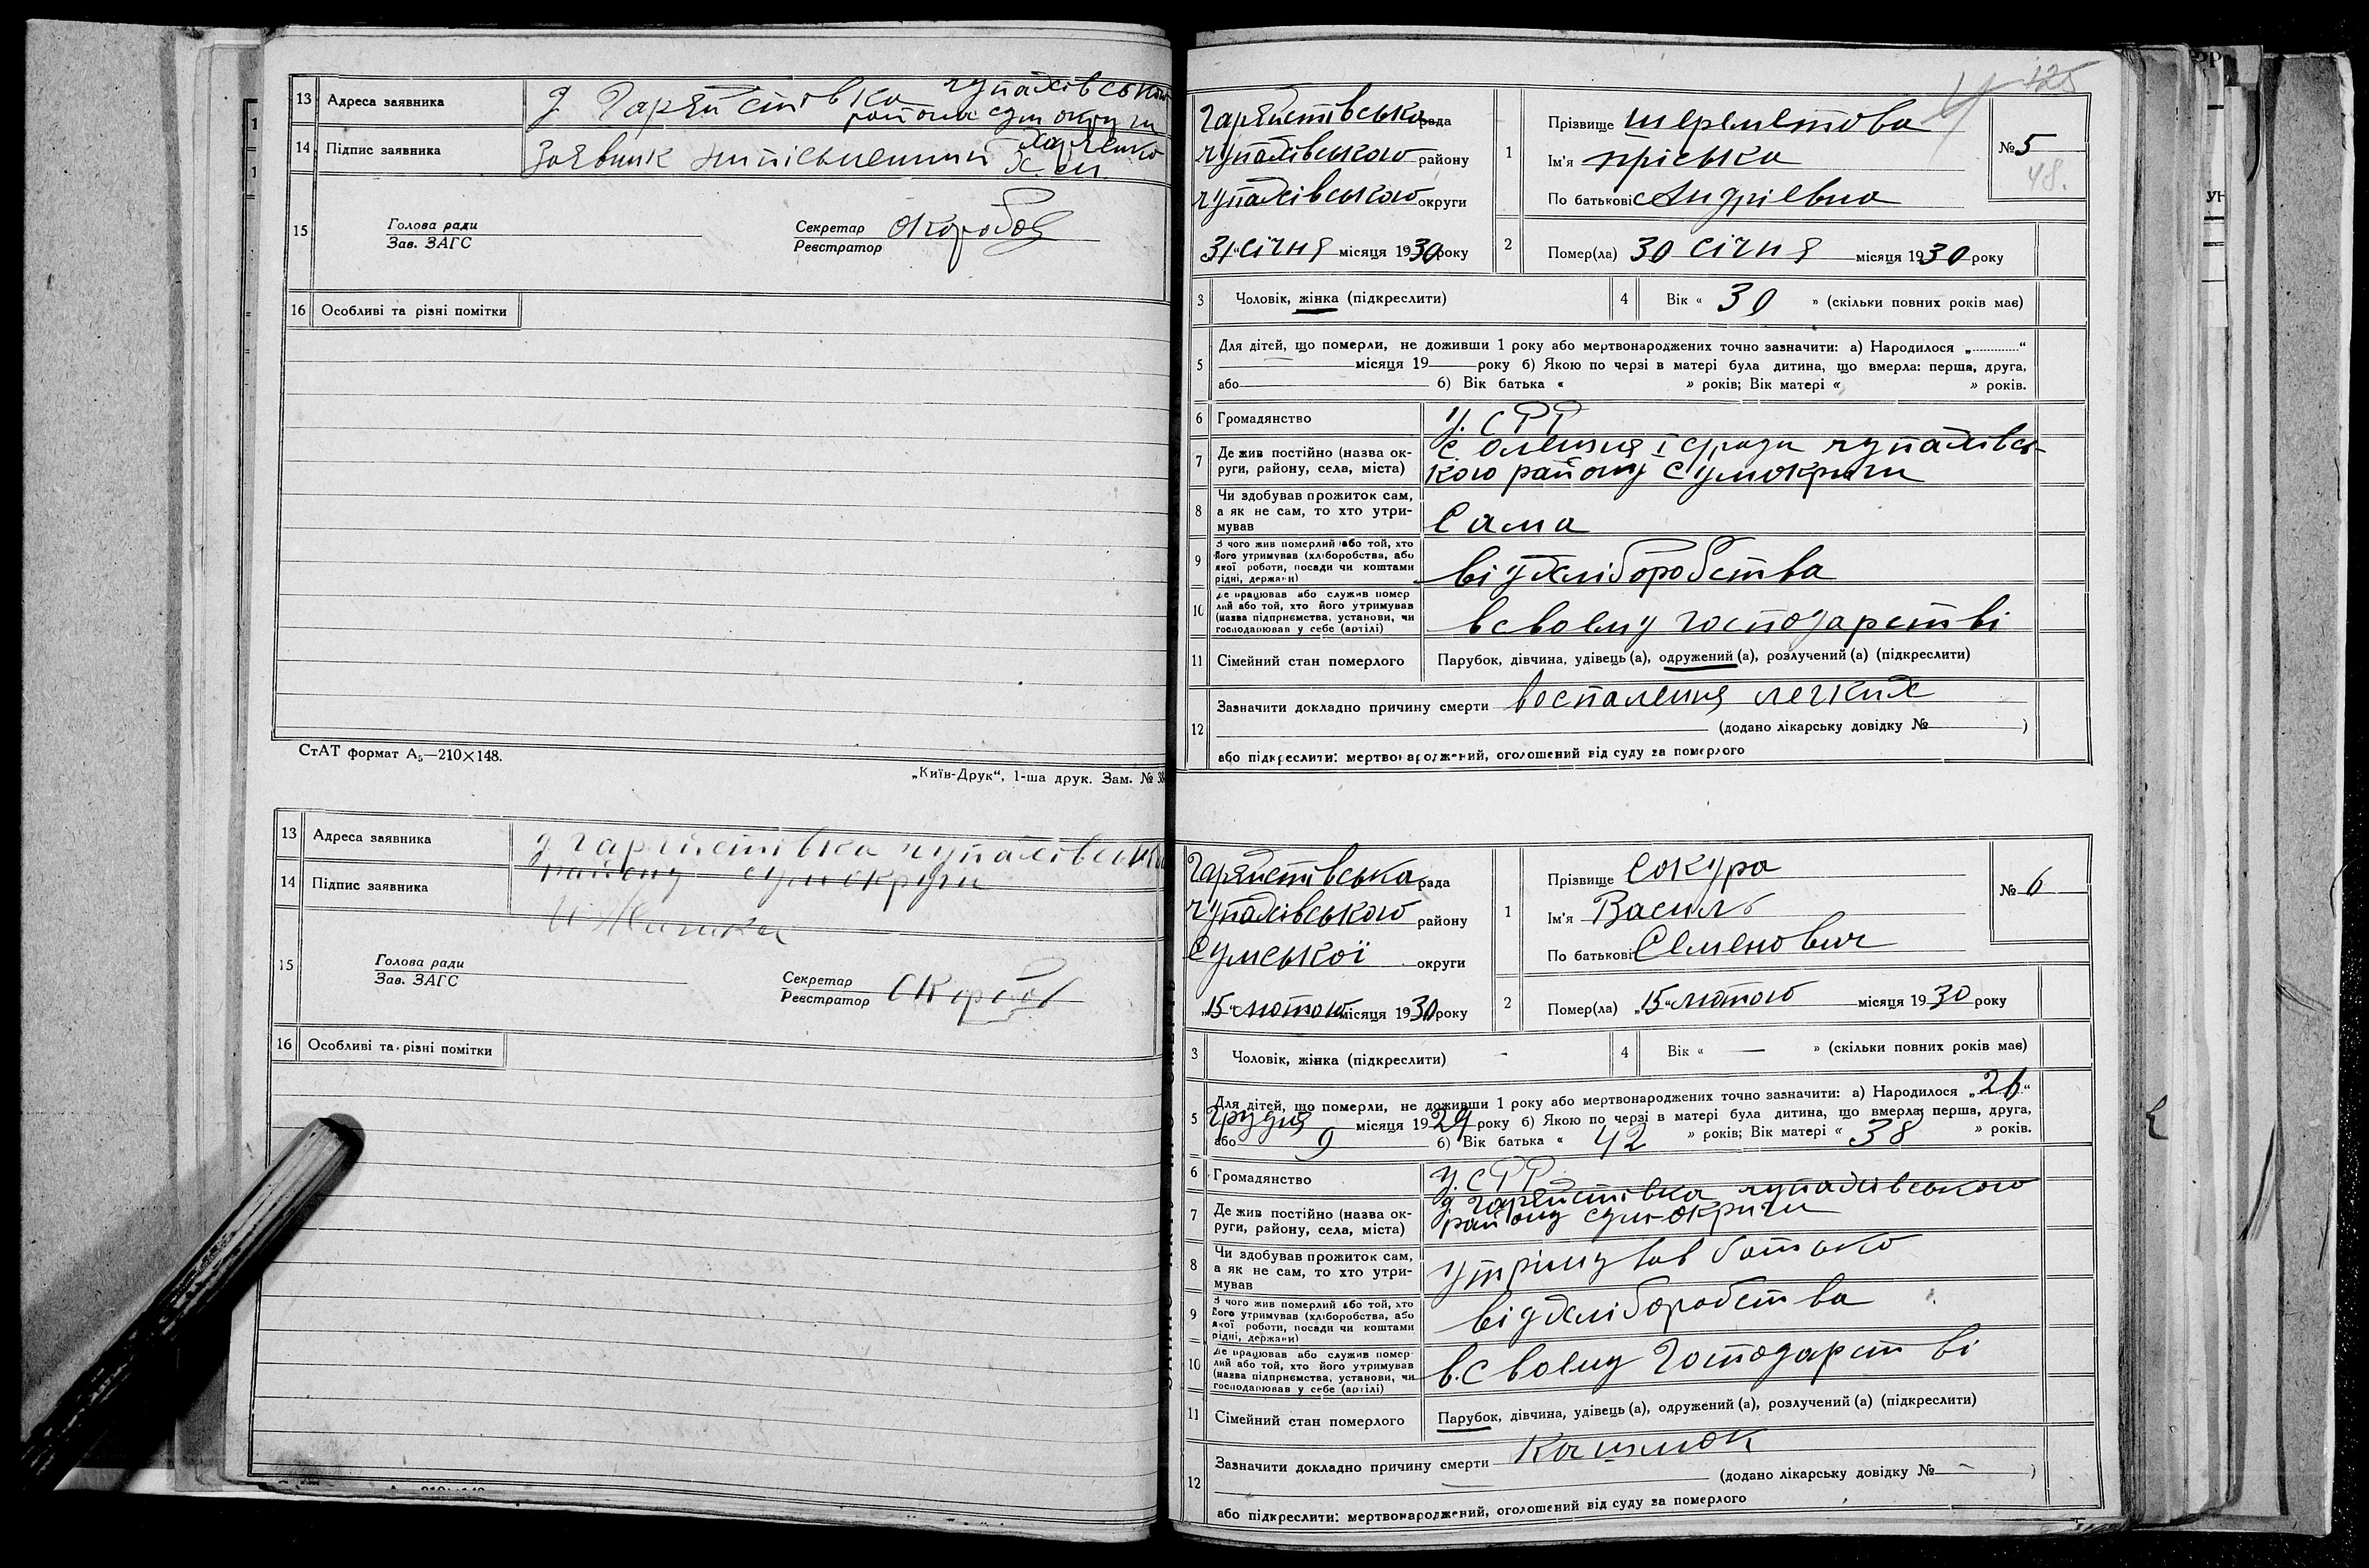 13 Адреса заявника д Гаряйстівка чупахівського
района сум округи
14 Підпис заявника Заявник неписьменний
15 Голова ради
Зав. ЗАГС
Секретар
Реєстратор
16 Особливі та різні помітки
СтАТ формат А₅—210×148.
„Київ-Друк“, 1-ша друк. Зам. №
13 Адреса заявника д Гаряйстівка чупахівсько
району сумокруги
14 Підпис заявника
15 Голова ради
Зав. ЗАГС
Секретар
Реєстратор
16 Особливі та різні помітки
125
Гаряйстівська рада
чупахівського району
чупахівського округи
31 “ січня місяця 1930 року
1 Прізвище шереметова
Ім'я пріська
По батькові Андріевна
№ 5
48.
2 Помер(ла) 30 січня місяця 1930 року
3 Чоловік, жінка (підкреслити)
4 Вік « 30 » (скільки повних років має)
5 Для дітей, що померли, не доживши 1 року або мертвонароджених точно зазначити: а) Народилося „.............“
місяця 19 року б) Якою по черзі в матері була дитина, що вмерла: перша, друга,
або б) Вік батька « » років; Вік матері « » років.
6 Громадянство У.СРР
7 Де жив постійно (назва ок-
руги, району, села, міста)
с. Олешня І с/ради чупахівсь-
кого району Сумокруги
8 Чи здобував прожиток сам,
а як не сам, то хто утри-
мував
Сама
9 З чого жив померлий або той, хто
його утримував (хліборобства, або
якої роботи, посади чи коштами
рідні, держави)
від хліборобства
10 Де працював або служив помер
лий або той, хто його утримував
(назва підприємства, установи, чи
господарював у себе (артілі)
в своему господарстві
11 Сімейний стан померлого Парубок, дівчина, удівець (а), одружений (а), розлучений (а) (підкреслити)
12 Зазначити докладно причину смерти воспаления легких
(додано лікарську довідку № )
або підкреслити: мертвонароджений, оголошений від суду за померлого
Гаряйстівська рада
чупахівського району
Сумської округи
„15“ лютого місяця 1930 року
1 Прізвище Сокура
Ім'я Василь
По батькові Семенович
№ 6
2 Помер(ла) „15“ лютого місяця 1930 року
3 Чоловік, жінка (підкреслити)
4 Вік « — » (скільки повних років має)
5 Для дітей, що померли, не доживши 1 року або мертвонароджених точно зазначити: а) Народилося „26“
грудня місяця 1929 року б) Якою по черзі в матері була дитина, що вмерла: перша, друга,
або 9 б) Вік батька « 42 » років; Вік матері « 38 » років.
6 Громадянство У.СРР
7 Де жив постійно (назва ок-
руги, району, села, міста)
д Гаряйстівка чупахівського
району сумокруги
8 Чи здобував прожиток сам,
а як не сам, то хто утри-
мував
утрімував батько
9 З чого жив померлий або той, хто
його утримував (хліборобства, або
якої роботи, посади чи коштами
рідні, держави)
від хліборобства
10 Де працював або служив помер
лий або той, хто його утримував
(назва підприємства, установи, чи
господарював у себе (артілі)
в своему господарстві
11 Сімейний стан померлого Парубок, дівчина, удівець (а), одружений (а), розлучений (а) (підкреслити)
12 Зазначити докладно причину смерти Кашлюк
(додано лікарську довідку № — )
або підкреслити: мертвонароджений, оголошений від суду за померлого